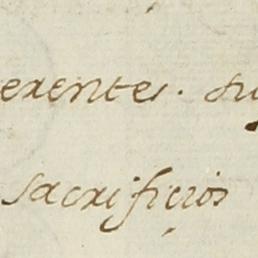 erentes. su
sacrificios